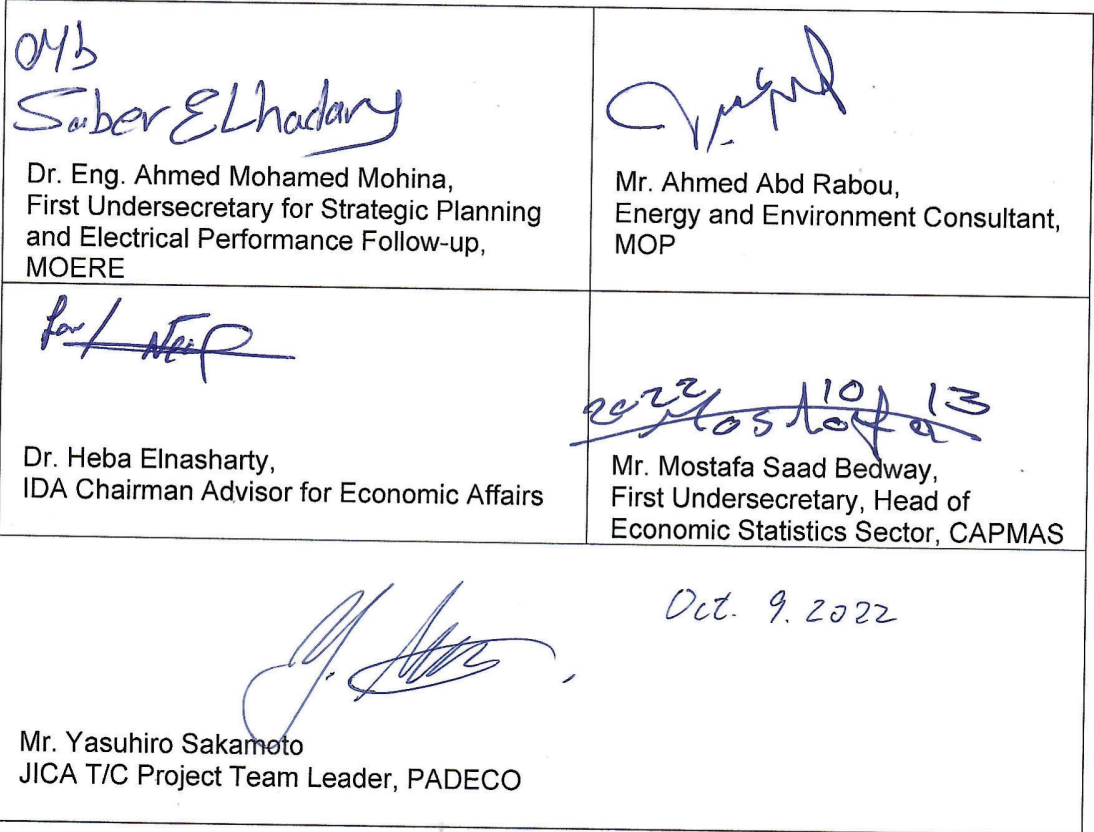 Saber ELhadary
Dr. Eng. Ahmed Mohamed Mohina,
First Undersecretary for Strategic Planning
and Electrical Performance Follow-up,
MOERE
Mr. Ahmed Abd Rabou,
Energy and Environment Consultant,
MOP
for/
Dr. Heba Elnasharty,
IDA Chairman Advisor for Economic Affairs
2022 10 13
Mostafa
Mr. Mostafa Saad Bedway,
First Undersecretary, Head of
Economic Statistics Sector, CAPMAS
Oct. 9. 2022
Mr. Yasuhiro Sakamoto
JICA T/C Project Team Leader, PADECO